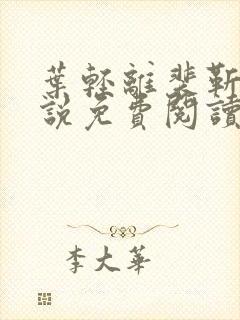 葉輕離裴靳
說免費閱讀
李大華